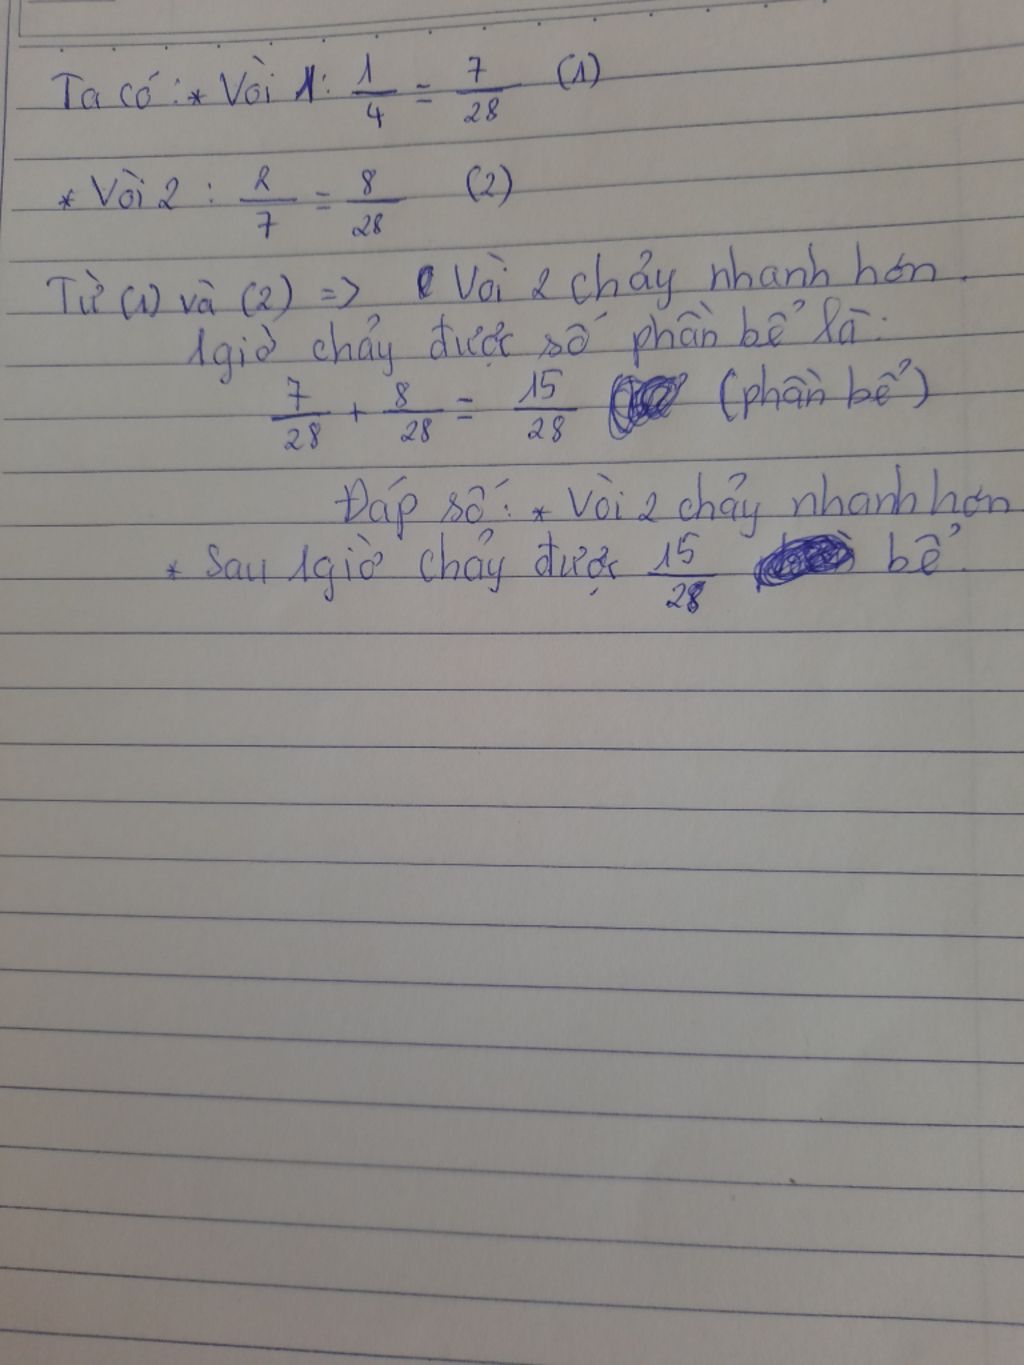 Ta có : * Vòi 1: 1/4 = 7/28 (1)
* Vòi 2 : 2/7 = 8/28 (2)
Từ (1) và (2) => Vòi 2 chảy nhanh hơn.
1giờ chảy được số phần bể là:
7/28 + 8/28 = 15/28 (phần bể)
Đáp số: * Vòi 2 chảy nhanh hơn
* Sau 1giờ chảy được 15/28 bể.